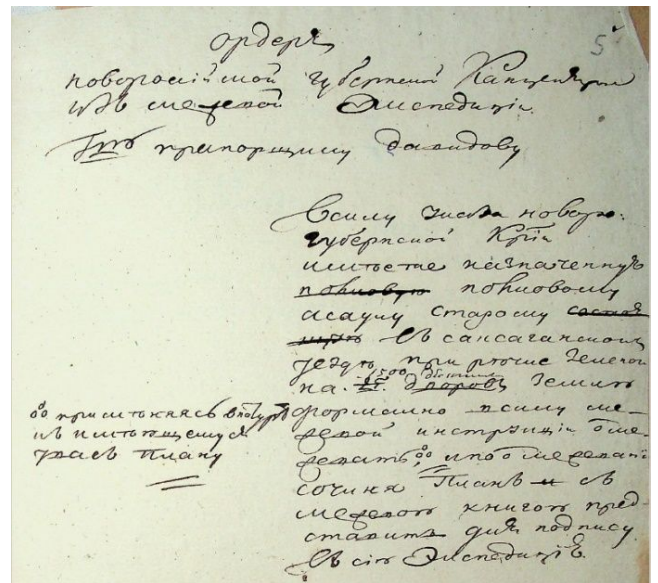 5
ордеръ
новоросiйской губернской Канцелярiи
изъ межевой Экспедицiи
Гдну прапорщику давидову
Всилу указа новоро:
губернской Кцiи
имѣете назначенную
полковому
асаулу старому
въ саксаганском
уездѣ при рѣчке Зеленой
на 1500 десятинъ землю
формално всилу ме-
жевой инструкцiи обме-
жевать, ипо обмежеванi
сочиня Планъ съ
межевою книгою пред-
ставить для подпису
въ сiю Экспедицiю.
примѣняясь внатурѣ
къ имѣющемуся
увасъ Плану